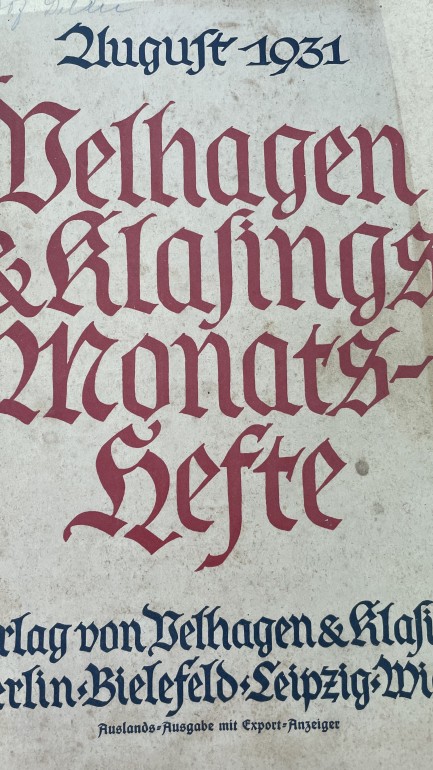 August 1931
Velhagen
& Klasings
Monats-
Hefte
rlag von Velhagen & Klasi
erlin-Bielefeld-Leipzig-Wi
Auslands-Ausgabe mit Export-Anzeiger